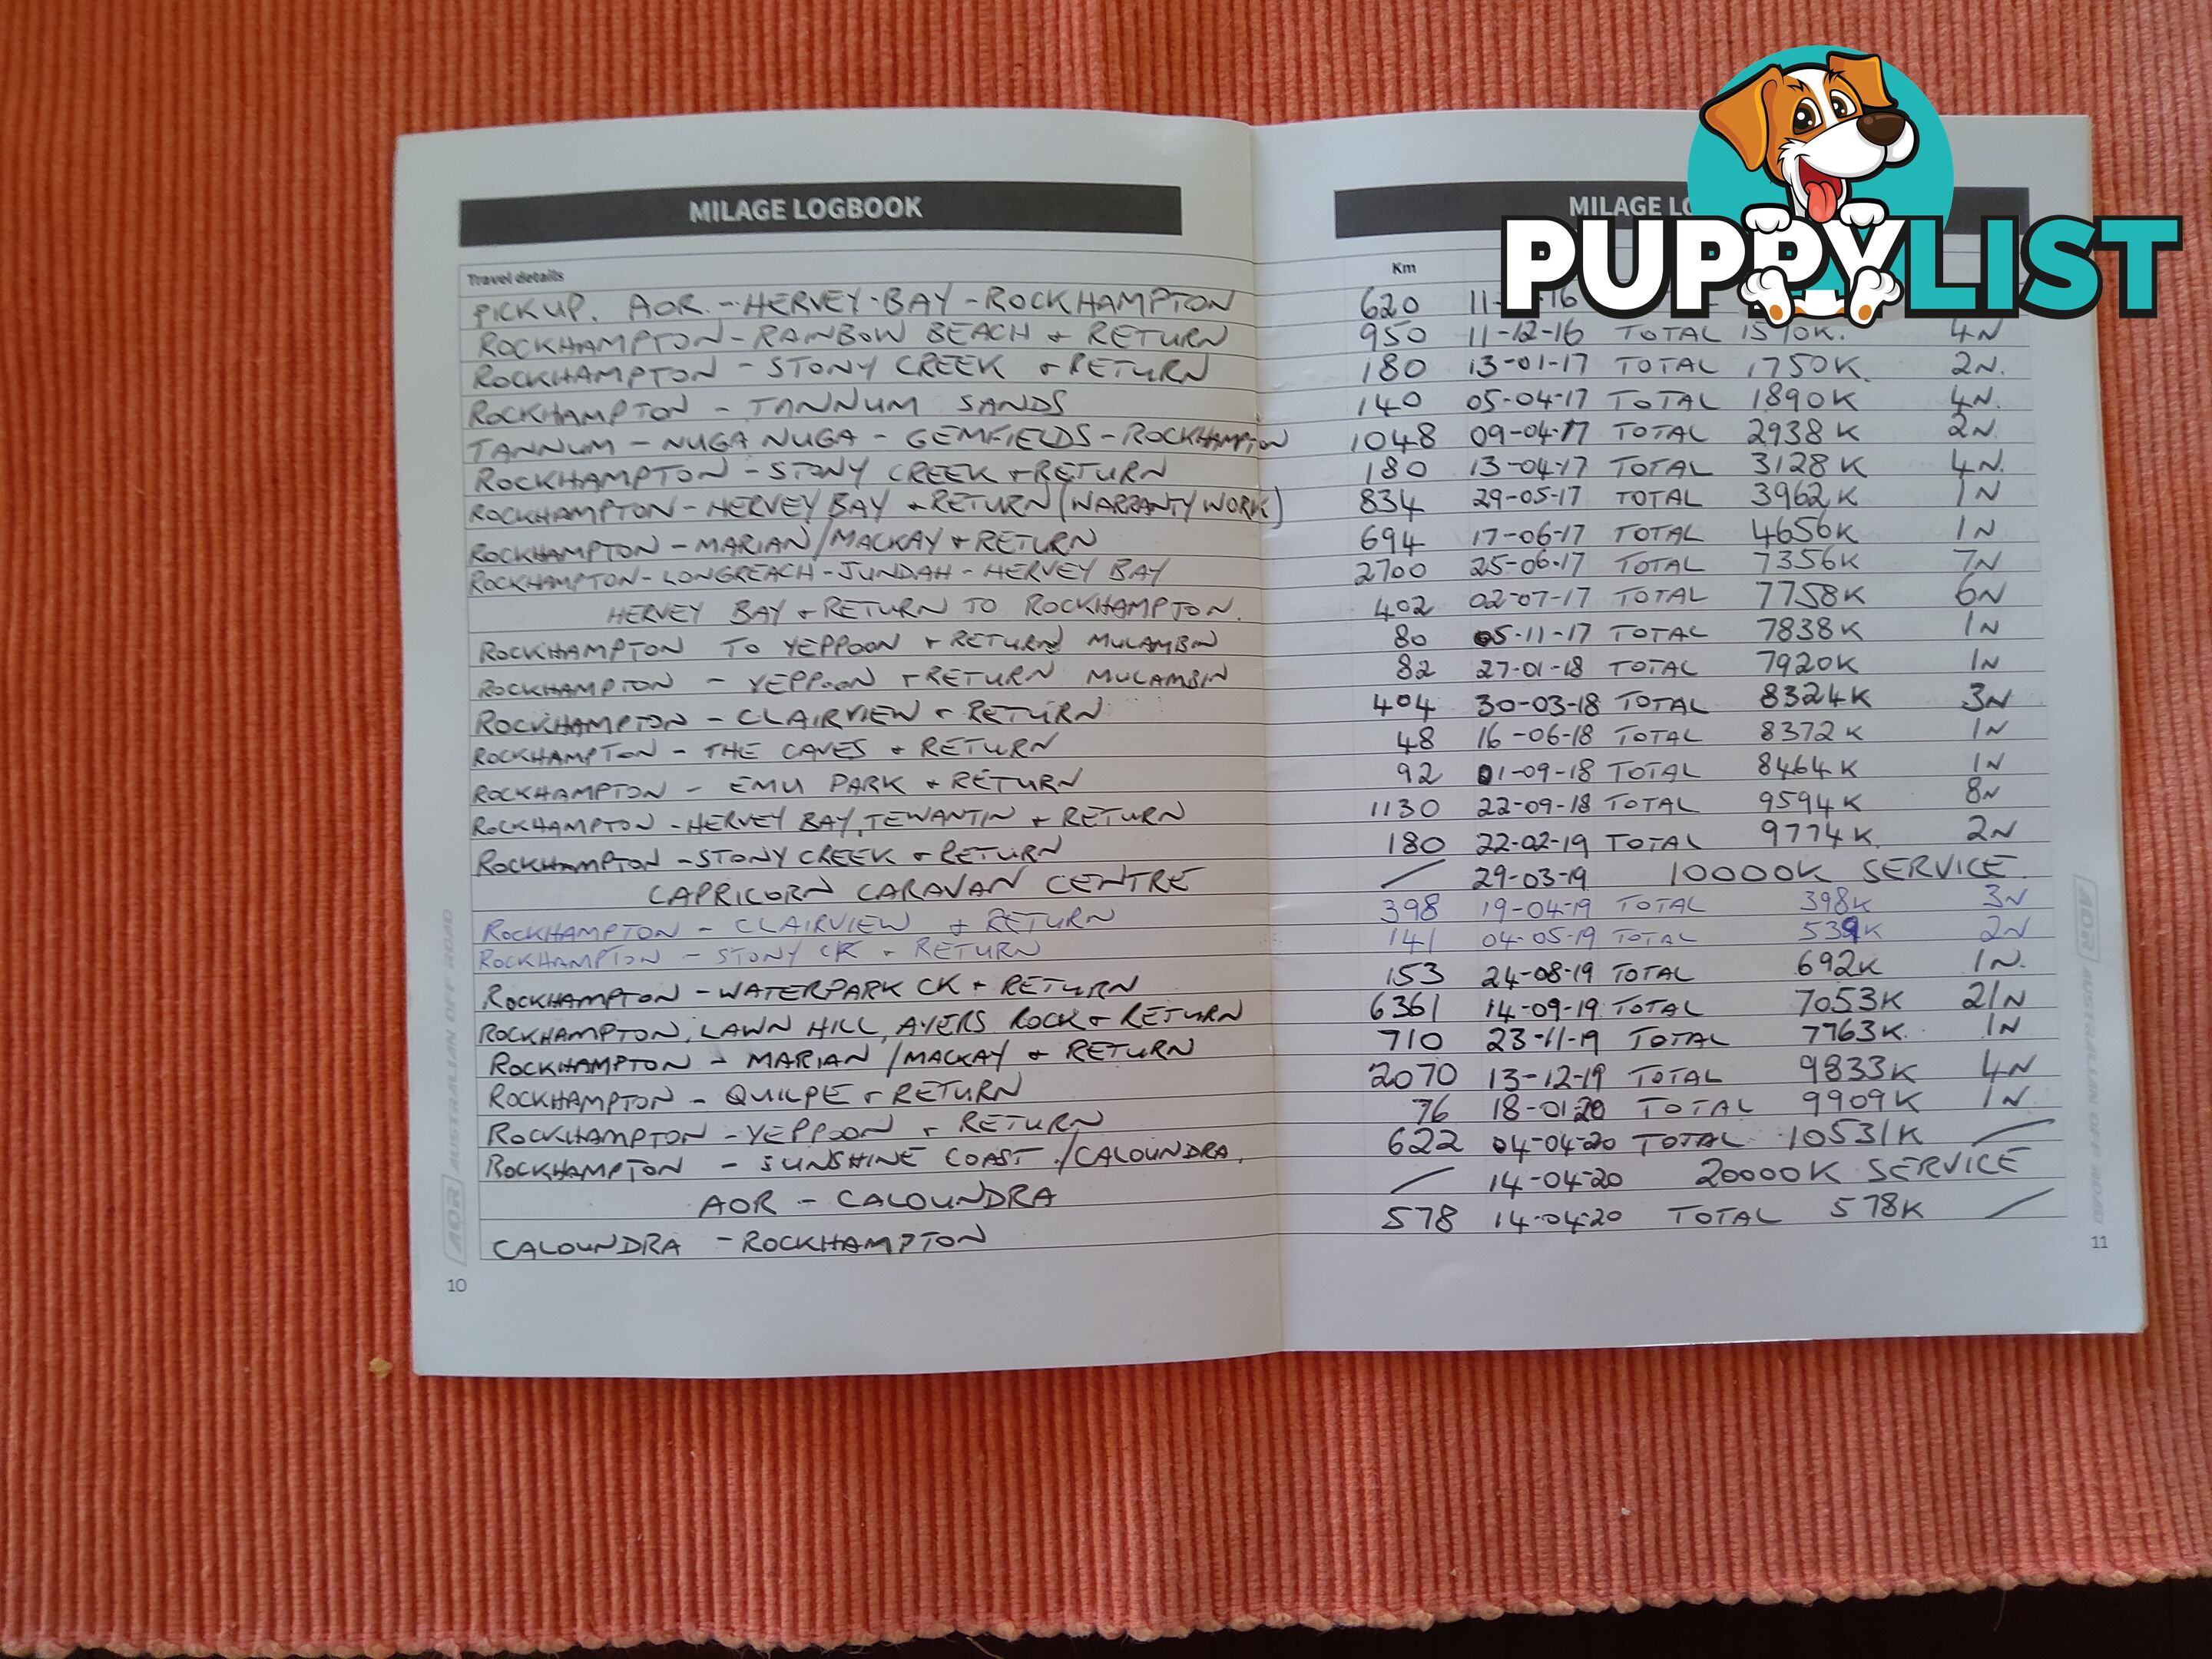 PUPPYLIST
MILAGE LOGBOOK MILAGE
Travel details Km
PICKUP. AOR. - HERVEY-BAY - ROCKHAMPTON 620
ROCKHAMPTON - RAINBOW BEACH & RETURN 950 11-12-16 TOTAL 1570K. 4N
ROCKHAMPTON - STONY CREEK & RETURN 180 13-01-17 TOTAL 1750K. 2N.
ROCKHAMPTON - TANNUM SANDS 140 05-04-17 TOTAL 1890K 4N.
TANNUM - NUGA NUGA - GEMFIELDS - ROCKHAMPTON 1048 09-04-17 TOTAL 2938K 2N
ROCKHAMPTON - STONY CREEK & RETURN 180 13-04-17 TOTAL 3128K 4N.
ROCKHAMPTON - HERVEY BAY & RETURN (WARRANTY WORK) 834 29-05-17 TOTAL 3962K 1N
ROCKHAMPTON - MARIAN/MACKAY & RETURN 694 17-06-17 TOTAL 4656K 1N
ROCKHAMPTON - LONGREACH - JUNDAH - HERVEY BAY 2700 25-06-17 TOTAL 7356K 7N
HERVEY BAY & RETURN TO ROCKHAMPTON. 402 02-07-17 TOTAL 7758K 6N
ROCKHAMPTON TO YEPPOON & RETURN MULAMBIN 80 05-11-17 TOTAL 7838K 1N
ROCKHAMPTON - YEPPOON & RETURN MULAMBIN 82 27-01-18 TOTAL 7920K 1N
ROCKHAMPTON - CLAIRVIEW & RETURN 404 30-03-18 TOTAL 8324K 3N
ROCKHAMPTON - THE CAVES & RETURN 48 16-06-18 TOTAL 8372K 1N
ROCKHAMPTON - EMU PARK & RETURN 92 01-09-18 TOTAL 8464K 1N
ROCKHAMPTON - HERVEY BAY, TEWANTIN & RETURN 1130 22-09-18 TOTAL 9594K 8N
ROCKHAMPTON - STONY CREEK & RETURN 180 22-02-19 TOTAL 9774K. 2N
CAPRICORN CARAVAN CENTRE / 29-03-19 10000K SERVICE.
ROCKHAMPTON - CLAIRVIEW & RETURN 398 19-04-19 TOTAL 398K 3N
ROCKHAMPTON - STONY CK & RETURN 141 04-05-19 TOTAL 539K 2N
ROCKHAMPTON - WATERPARK CK & RETURN 153 24-08-19 TOTAL 692K 1N.
ROCKHAMPTON, LAWN HILL, AYERS ROCK & RETURN 6361 14-09-19 TOTAL 7053K 21N
ROCKHAMPTON - MARIAN/MACKAY & RETURN 710 23-11-19 TOTAL 7763K. 1N
ROCKHAMPTON - QUILPE & RETURN 2070 13-12-19 TOTAL 9833K 4N
ROCKHAMPTON - YEPPOON & RETURN 76 18-01-20 TOTAL 9909K 1N
ROCKHAMPTON - SUNSHINE COAST./CALOUNDRA. 622 04-04-20 TOTAL 10531K /
AOR - CALOUNDRA / 14-04-20 20000K SERVICE
CALOUNDRA - ROCKHAMPTON 578 14-04-20 TOTAL 578K /
AOR AUSTRALIAN OFF ROAD
AOR AUSTRALIAN OFF ROAD
10 11